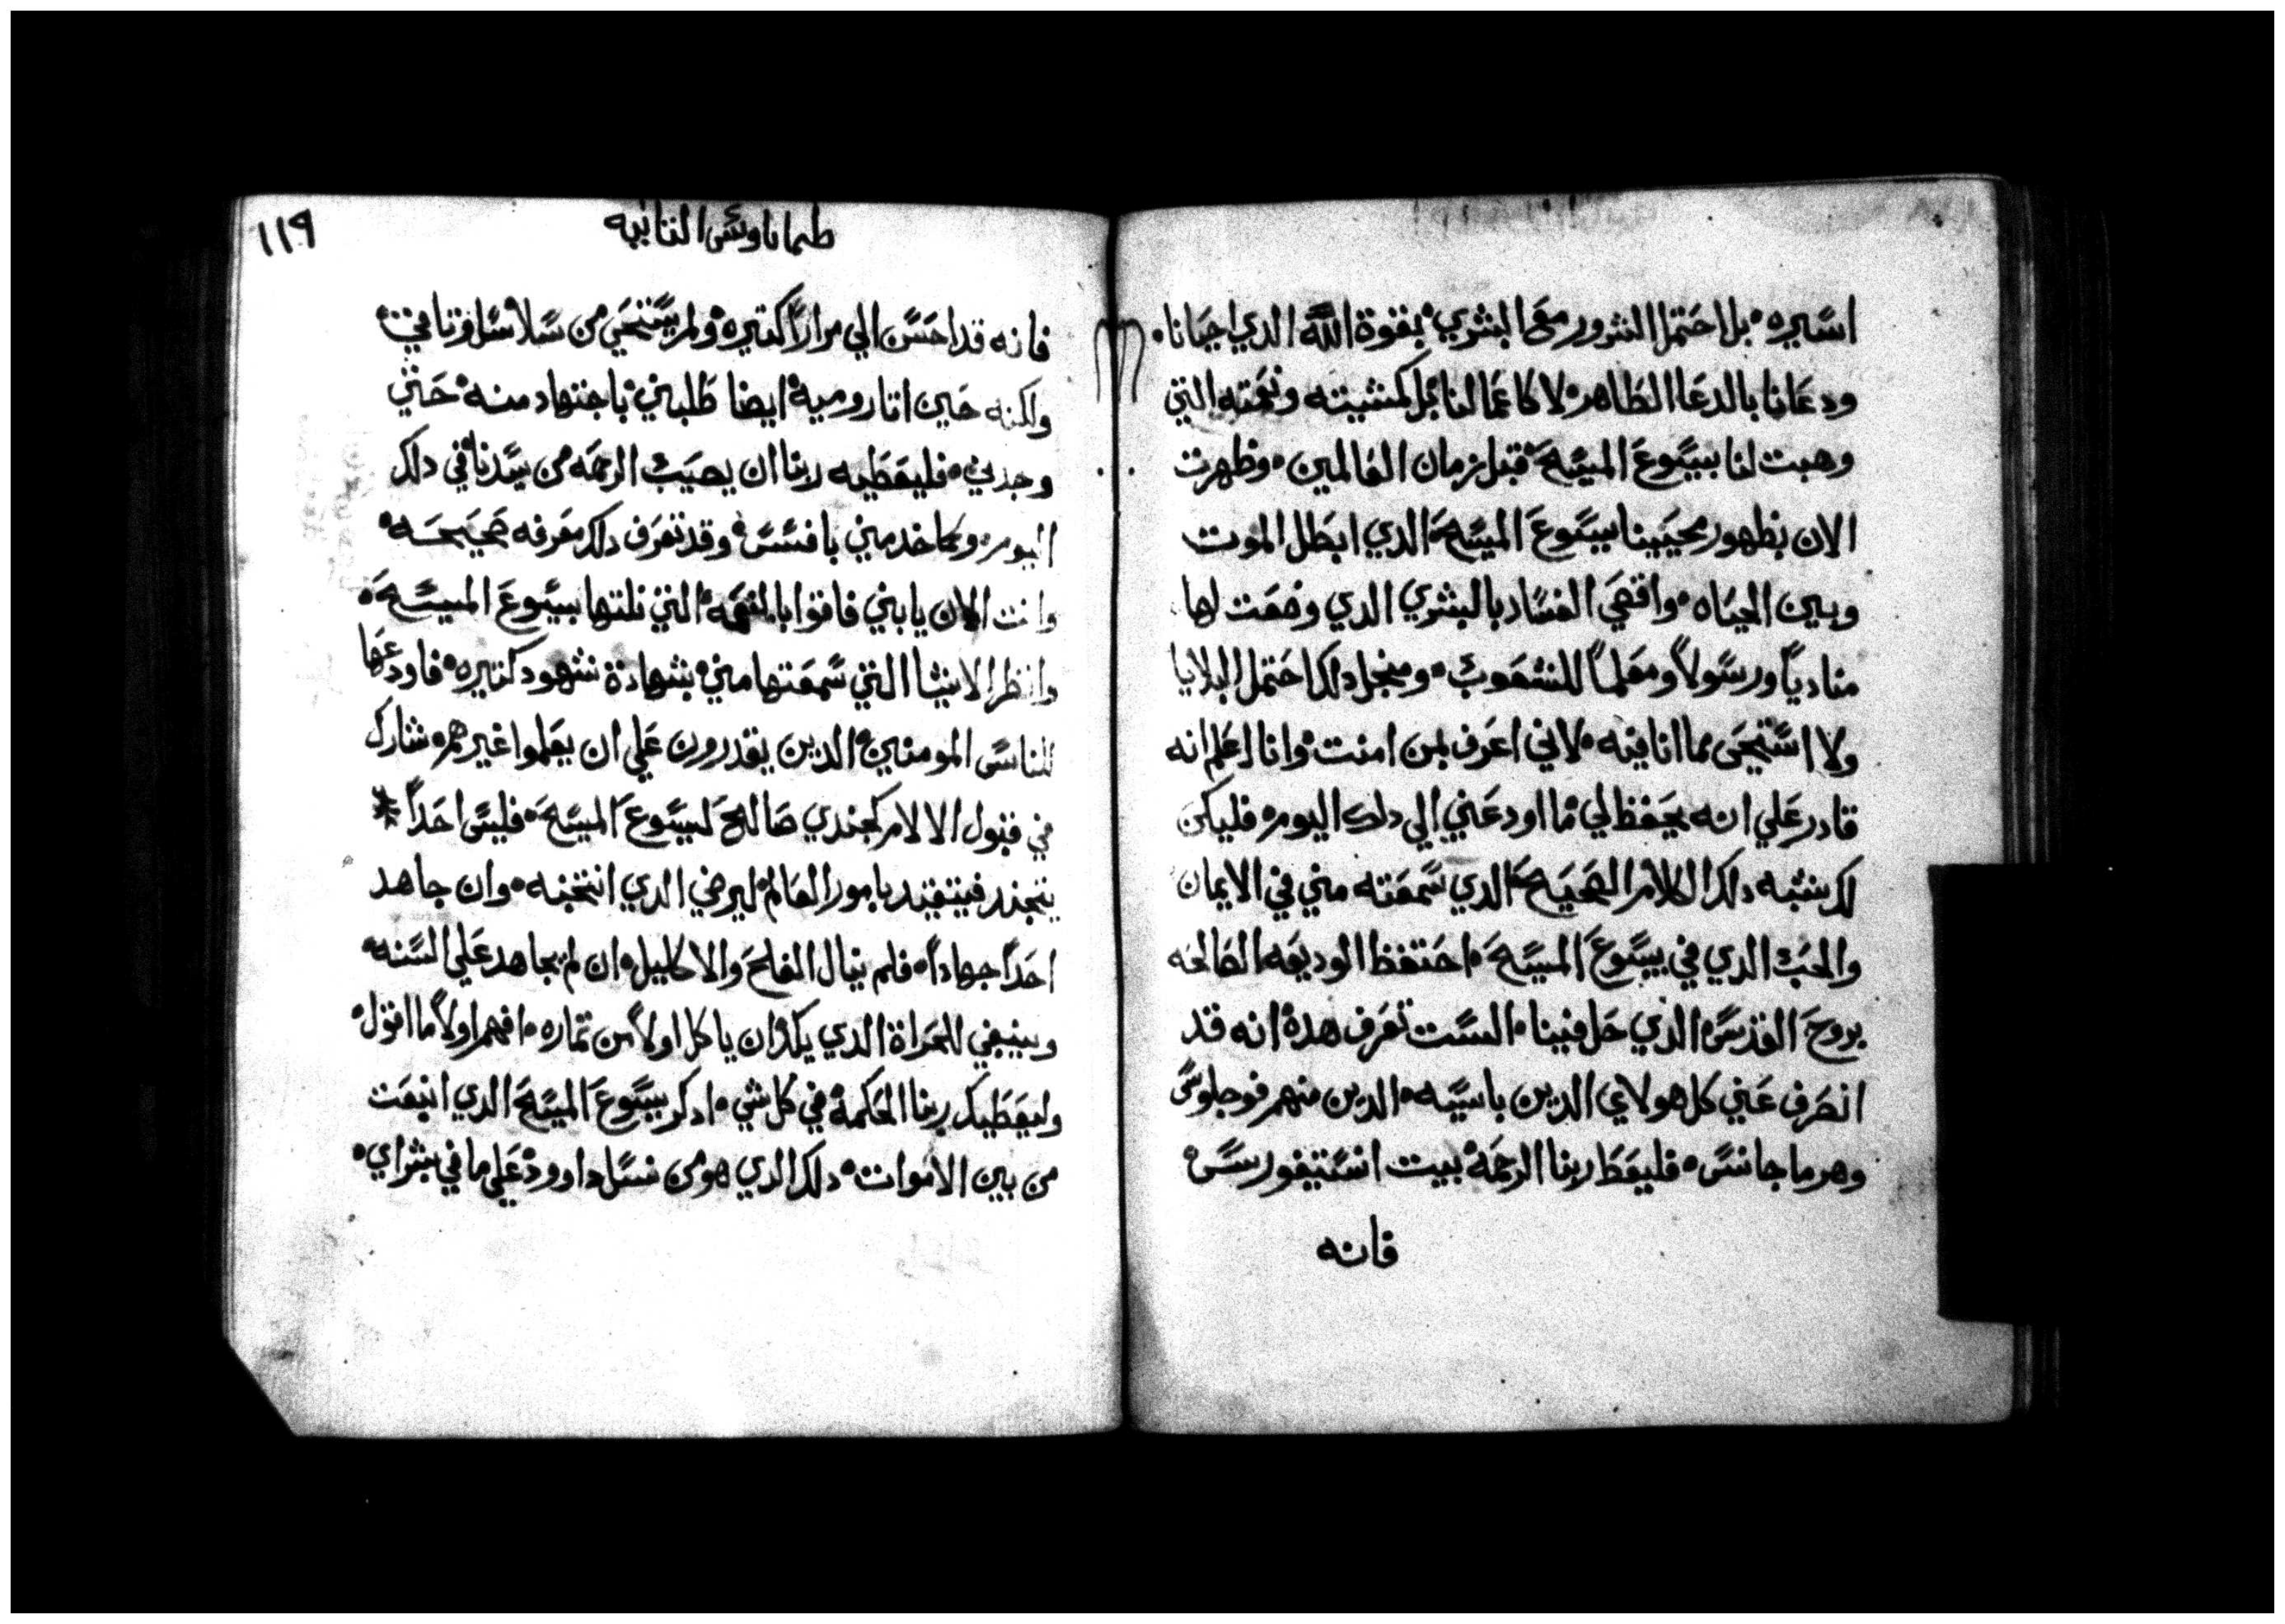 اسيره، بل احتمل الشرور مع البشري، بقوة الله الدي احيانا،
ودعانا بالدعا الطاهر، لا كاعمالنا، بل كمشيته ونعمته التي
وهبت لنا بيسوع المسيح، قبل زمان العالمين، وظهرت
الان بظهور محيينا يسوع المسيح، الدي ابطل الموت
وبين الحياه، واقصي الفساد بالبشري الدي وضعت لها
مناديًا ورسولاً ومعلمًا للشعوب، ومنجل دلك احتمل البلايا
ولا استحي مما انا فيه، لاني اعرف بمن امنت، وانا اعلم انه
قادر علي انه يحفظ لي ما اودعني الي دلك اليوم، فليكن
لك شبه دلك الكلام الصحيح، الدي سمعته مني في الايمان
والحب الدي في يسوع المسيح، احتفظ الوديعه الصالحه
بروح القدس الذي حل فينا، الست تعرف هده، انه قد
انصرف عني كل هولاي الدين باسيه، الدين منهم فوجلوس
وهرماجانس، فليعط ربنا الرحمة، بيت انسيفورس،
فانه
طيماتاوس التانيه
١١٩
فانه قد احسن الي مرارًا كتيره، ولم يستحي من سلاسل وثاقي،
ولكنه حين اتا روميه، ايضا طلبني باجتهاد منه، حتي
وجدني، فليعطيه ربنا ان يصيب الرحمه من سيدنا في دلك
اليوم، وكما خدمني بافسس، وقد تعرف دلك معرفه صحيحه،
وانت الان يا بني فاقوا بالنعمه، التي نلتها بيسوع المسيح،
وانظر الاشيا التي سمعتها مني، بشهادة شهود كتيره، فاودعها
للناس المومنين، الدين يقدرون علي ان يعلموا غيرهم، شارك
في قبول الالام كجندي صالح ليسوع المسيح، فليس احدًا *
يتجند فيتقيد بامور العالم، ليرضي الدي انتخبه، وان جاهد
احدًا جهادًا، فلم ينال الفلح والاكليل، ان لم يجاهد علي السنه،
وينبغي للحراة الدي يكد، ان ياكل اولاً من تماره، افهم اولاً ما اقول،
وليعطيك ربنا الحكمة، في كل شي، ادكر يسوع المسيح الدي انبعت
من بين الاموات، دلك الدي هو من نسل داوود، علي ما في بشراي،